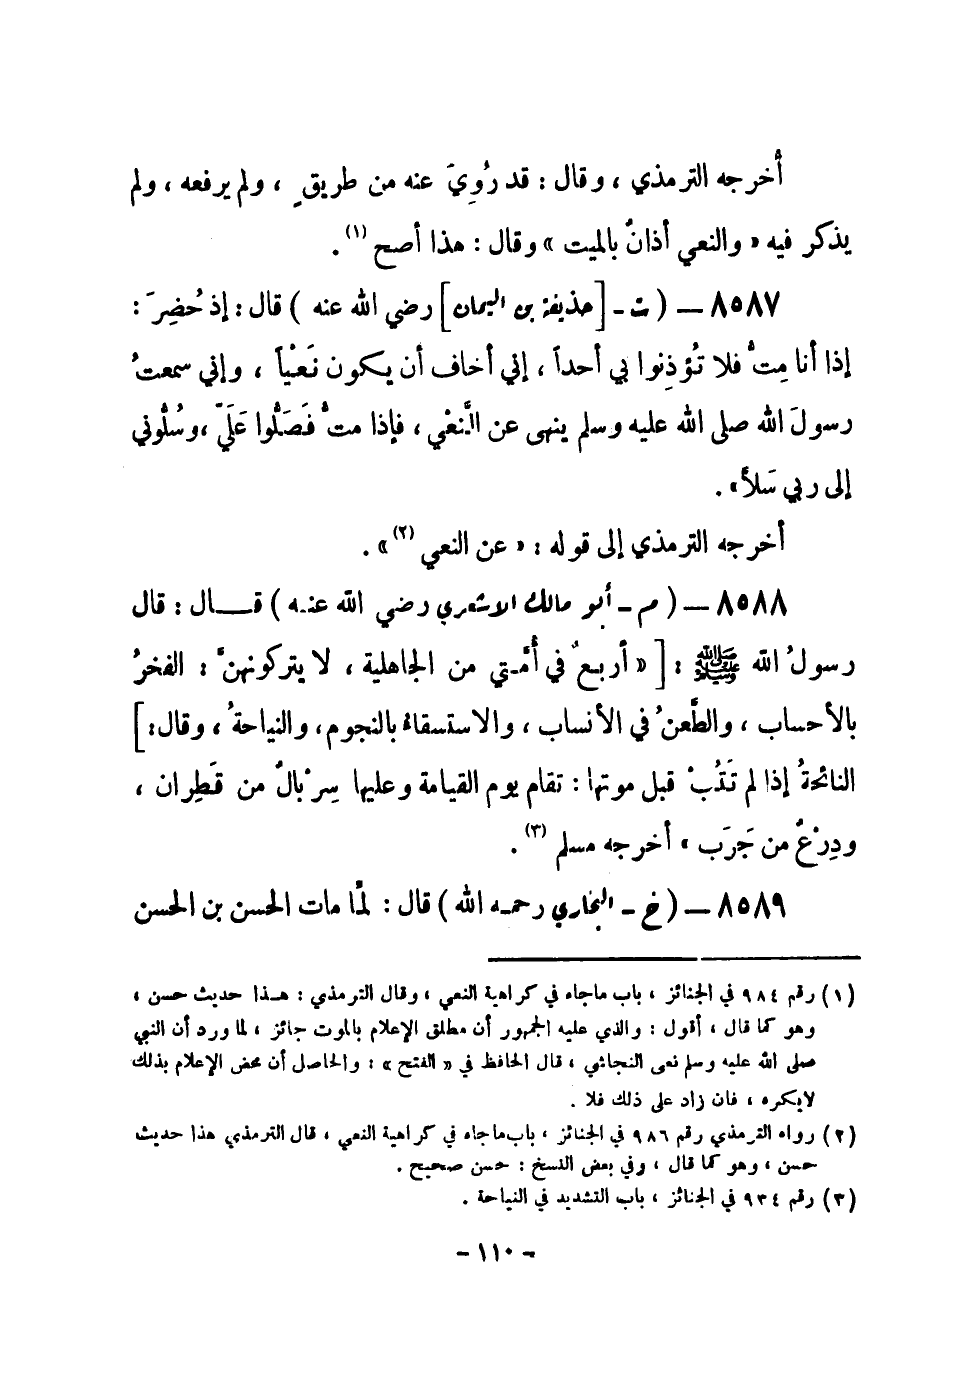 أخرجه الترمذي ، وقال : قد رُوِيَ عنه من طريقٍ ، ولم يرفعه ، ولم
يذكر فيه « والنعي أذانٌ بالميت » وقال : هذا أصح (١) .
٨٥٨٧ — ( ت - [حذيفة بن اليمان] رضي الله عنه ) قال : إذ حُضِرَ :
إذا أنا مِتُّ فلا تُؤذِنوا بي أحداً ، إني أخاف أن يكون نَعْياً ، وإني سمعتُ
رسولَ الله صلى الله عليه وسلم ينهى عن النَّعْي ، فإذا متُّ فَصَلُّوا عَلَيَّ ، وسُلُّوني
إلى ربي سَلاً» .
أخرجه الترمذي إلى قوله : « عن النعي (٢) » .
٨٥٨٨ — ( م - أبو مالك الأشعري رضي الله عنه ) قـــال : قال
رسولُ الله ﷺ : [ « أربعٌ في أُمَّتي من الجاهلية ، لا يتركونهنَّ : الفخرُ
بالأحساب ، والطَّعنُ في الأنساب ، والاستسقاءُ بالنجوم ، والنياحةُ ، وقال : ]
النائحةُ إذا لم تَتُبْ قبل موتها : تقام يوم القيامة وعليها سِرْبالٌ من قَطِران ،
ودِرْعٌ من جَرَب » أخرجه مسلم (٣) .
٨٥٨٩ — ( خ - البخاري رحمه الله ) قال : لمَّا مات الحسن بن الحسن
(١) رقم ٩٨٤ في الجنائز ، باب ماجاء في كراهية النعي ، وقال الترمذي : هـذا حديث حسن ،
وهو كما قال ، أقول : والذي عليه الجمهور أن مطلق الإعلام بالموت جائز ، لما ورد أن النبي
صلى الله عليه وسلم نعى النجاشي ، قال الحافظ في « الفتح » : والحاصل أن محض الإعلام بذلك
لايكره ، فان زاد على ذلك فلا .
(٢) رواه الترمذي رقم ٩٨٦ في الجنائز ، باب ماجاء في كراهية النعي ، قال الترمذي هذا حديث
حسن ، وهو كما قال ، وفي بعض النسخ : حسن صحيح .
(٣) رقم ٩٣٤ في الجنائز ، باب التشديد في النياحة .
- ١١٠ -